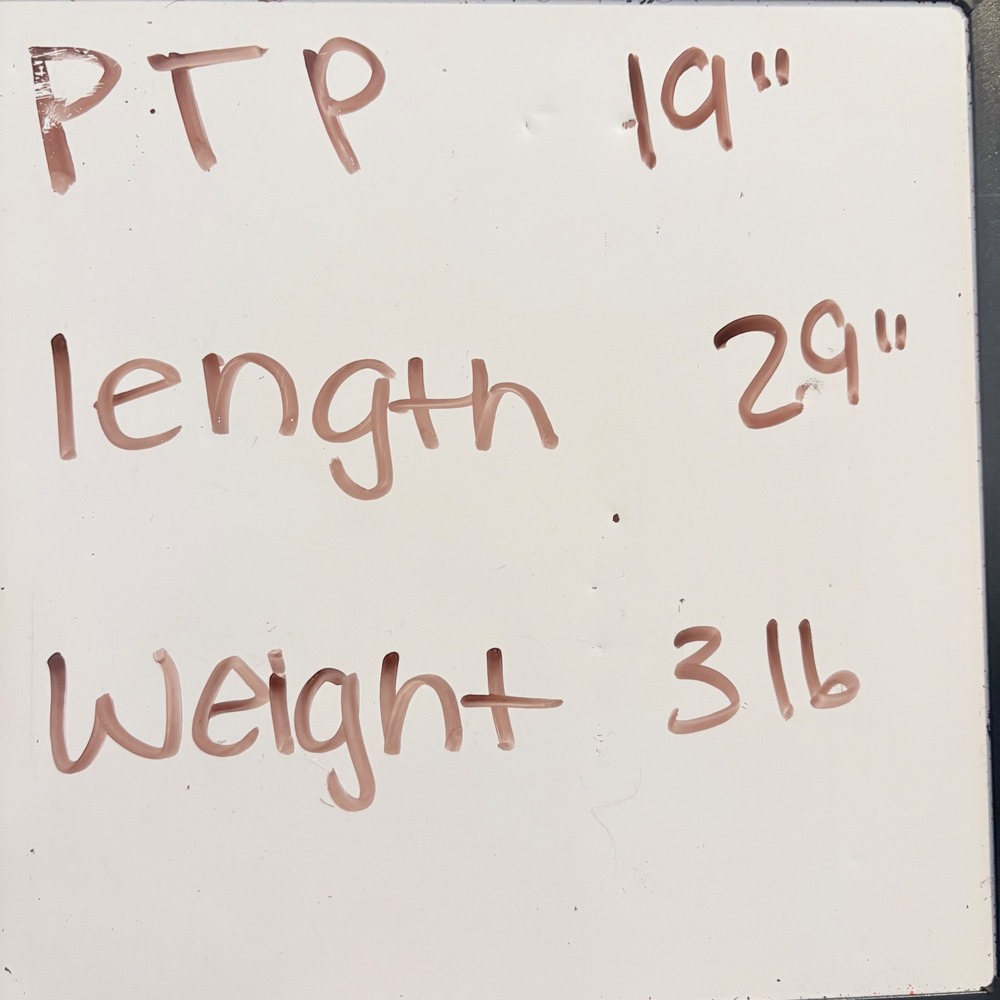 PTP 19"
length 29"
Weight 3 lb